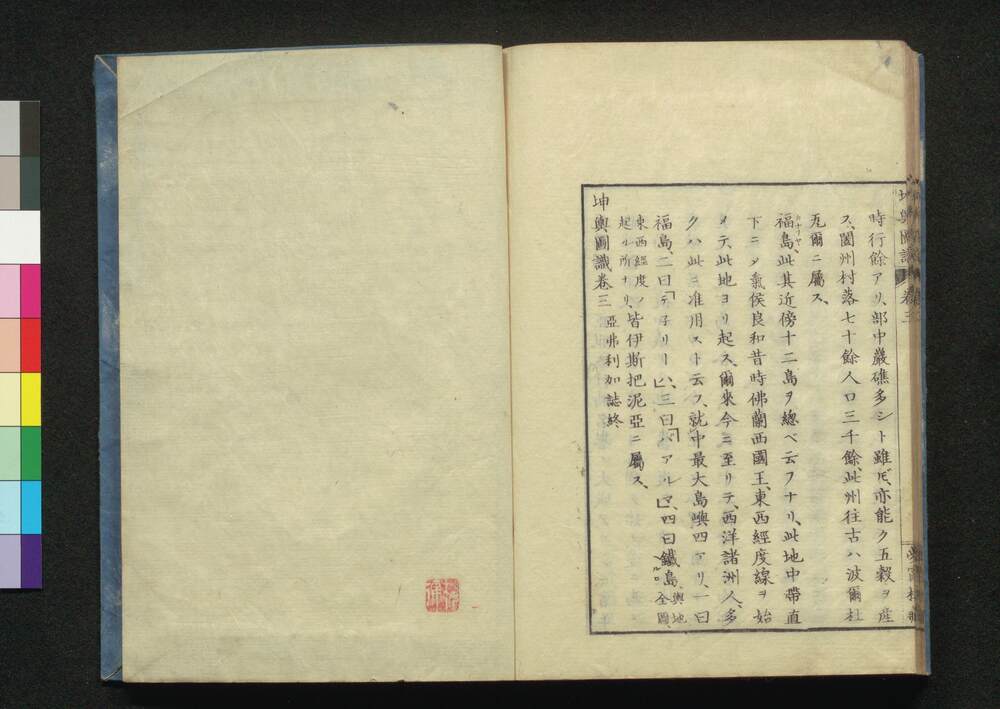 坤輿圖識 卷三
時行餘アリ、部中巖礁多シト雖𪜈、亦能ク五穀ヲ産
ス、闔州村落七十餘人口三千餘、此州往古ハ波爾杜
瓦爾ニ屬ス、
福島、此其近傍十二島ヲ總ベ云フナリ、此地中帶直
下ニ〆氣侯良和昔時佛蘭西國王、東西經度線ヲ始
メテ、此地ヨリ起ス、爾來今ニ至リテ、西洋諸洲人、多
クハ此ニ准用スト云フ、就中最大島嶼四アリ、一曰
福島、二曰「テ子リー」、三曰「パアルマ」、四曰鐵島、輿地全圖、
東西經度ノ起ル所ナリ、皆伊斯把泥亞ニ屬ス、
坤輿圖識卷三 亞弗利加誌終